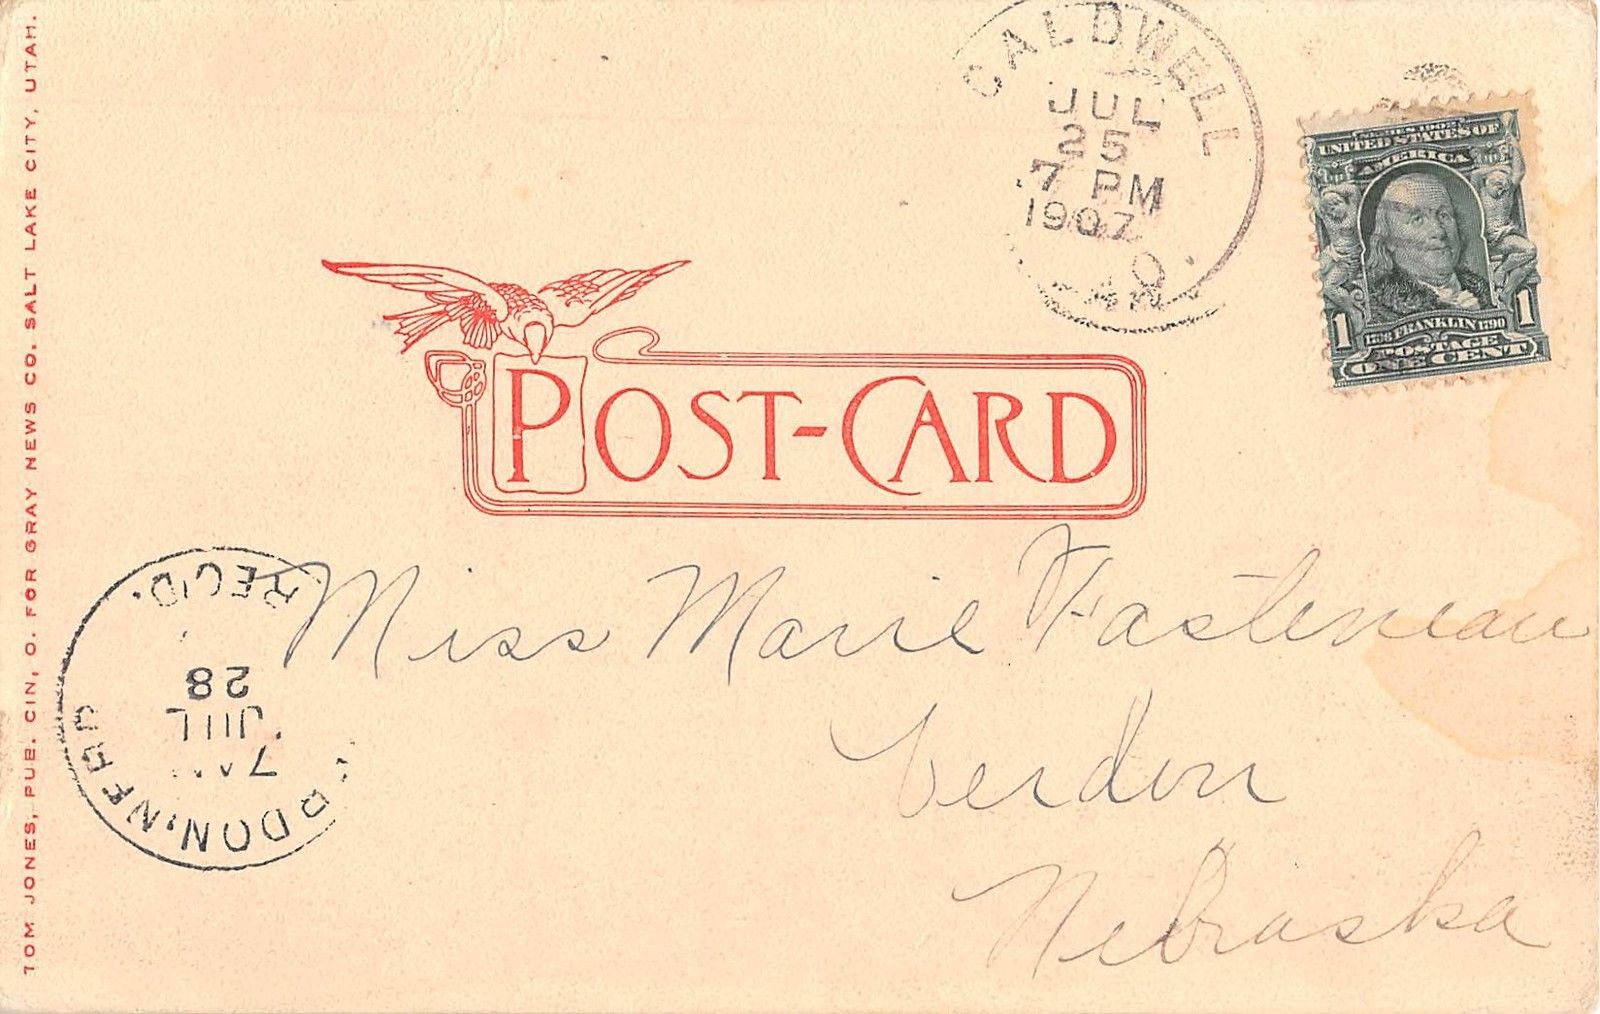 TOM JONES, PUB. CIN, O. FOR GRAY NEWS CO. SALT LAKE CITY, UTAH.
CALDWELL
JUL
25
7 PM
1907
SERIES 1902
UNITED STATES OF
AMERICA
1 1
FRANKLIN 1790
POSTAGE
ONE CENT
POST-CARD
Miss Marie Fasteneau
Verdon
Nebraska
RDON, NEB
7 AM
JUL
28
REC'D.